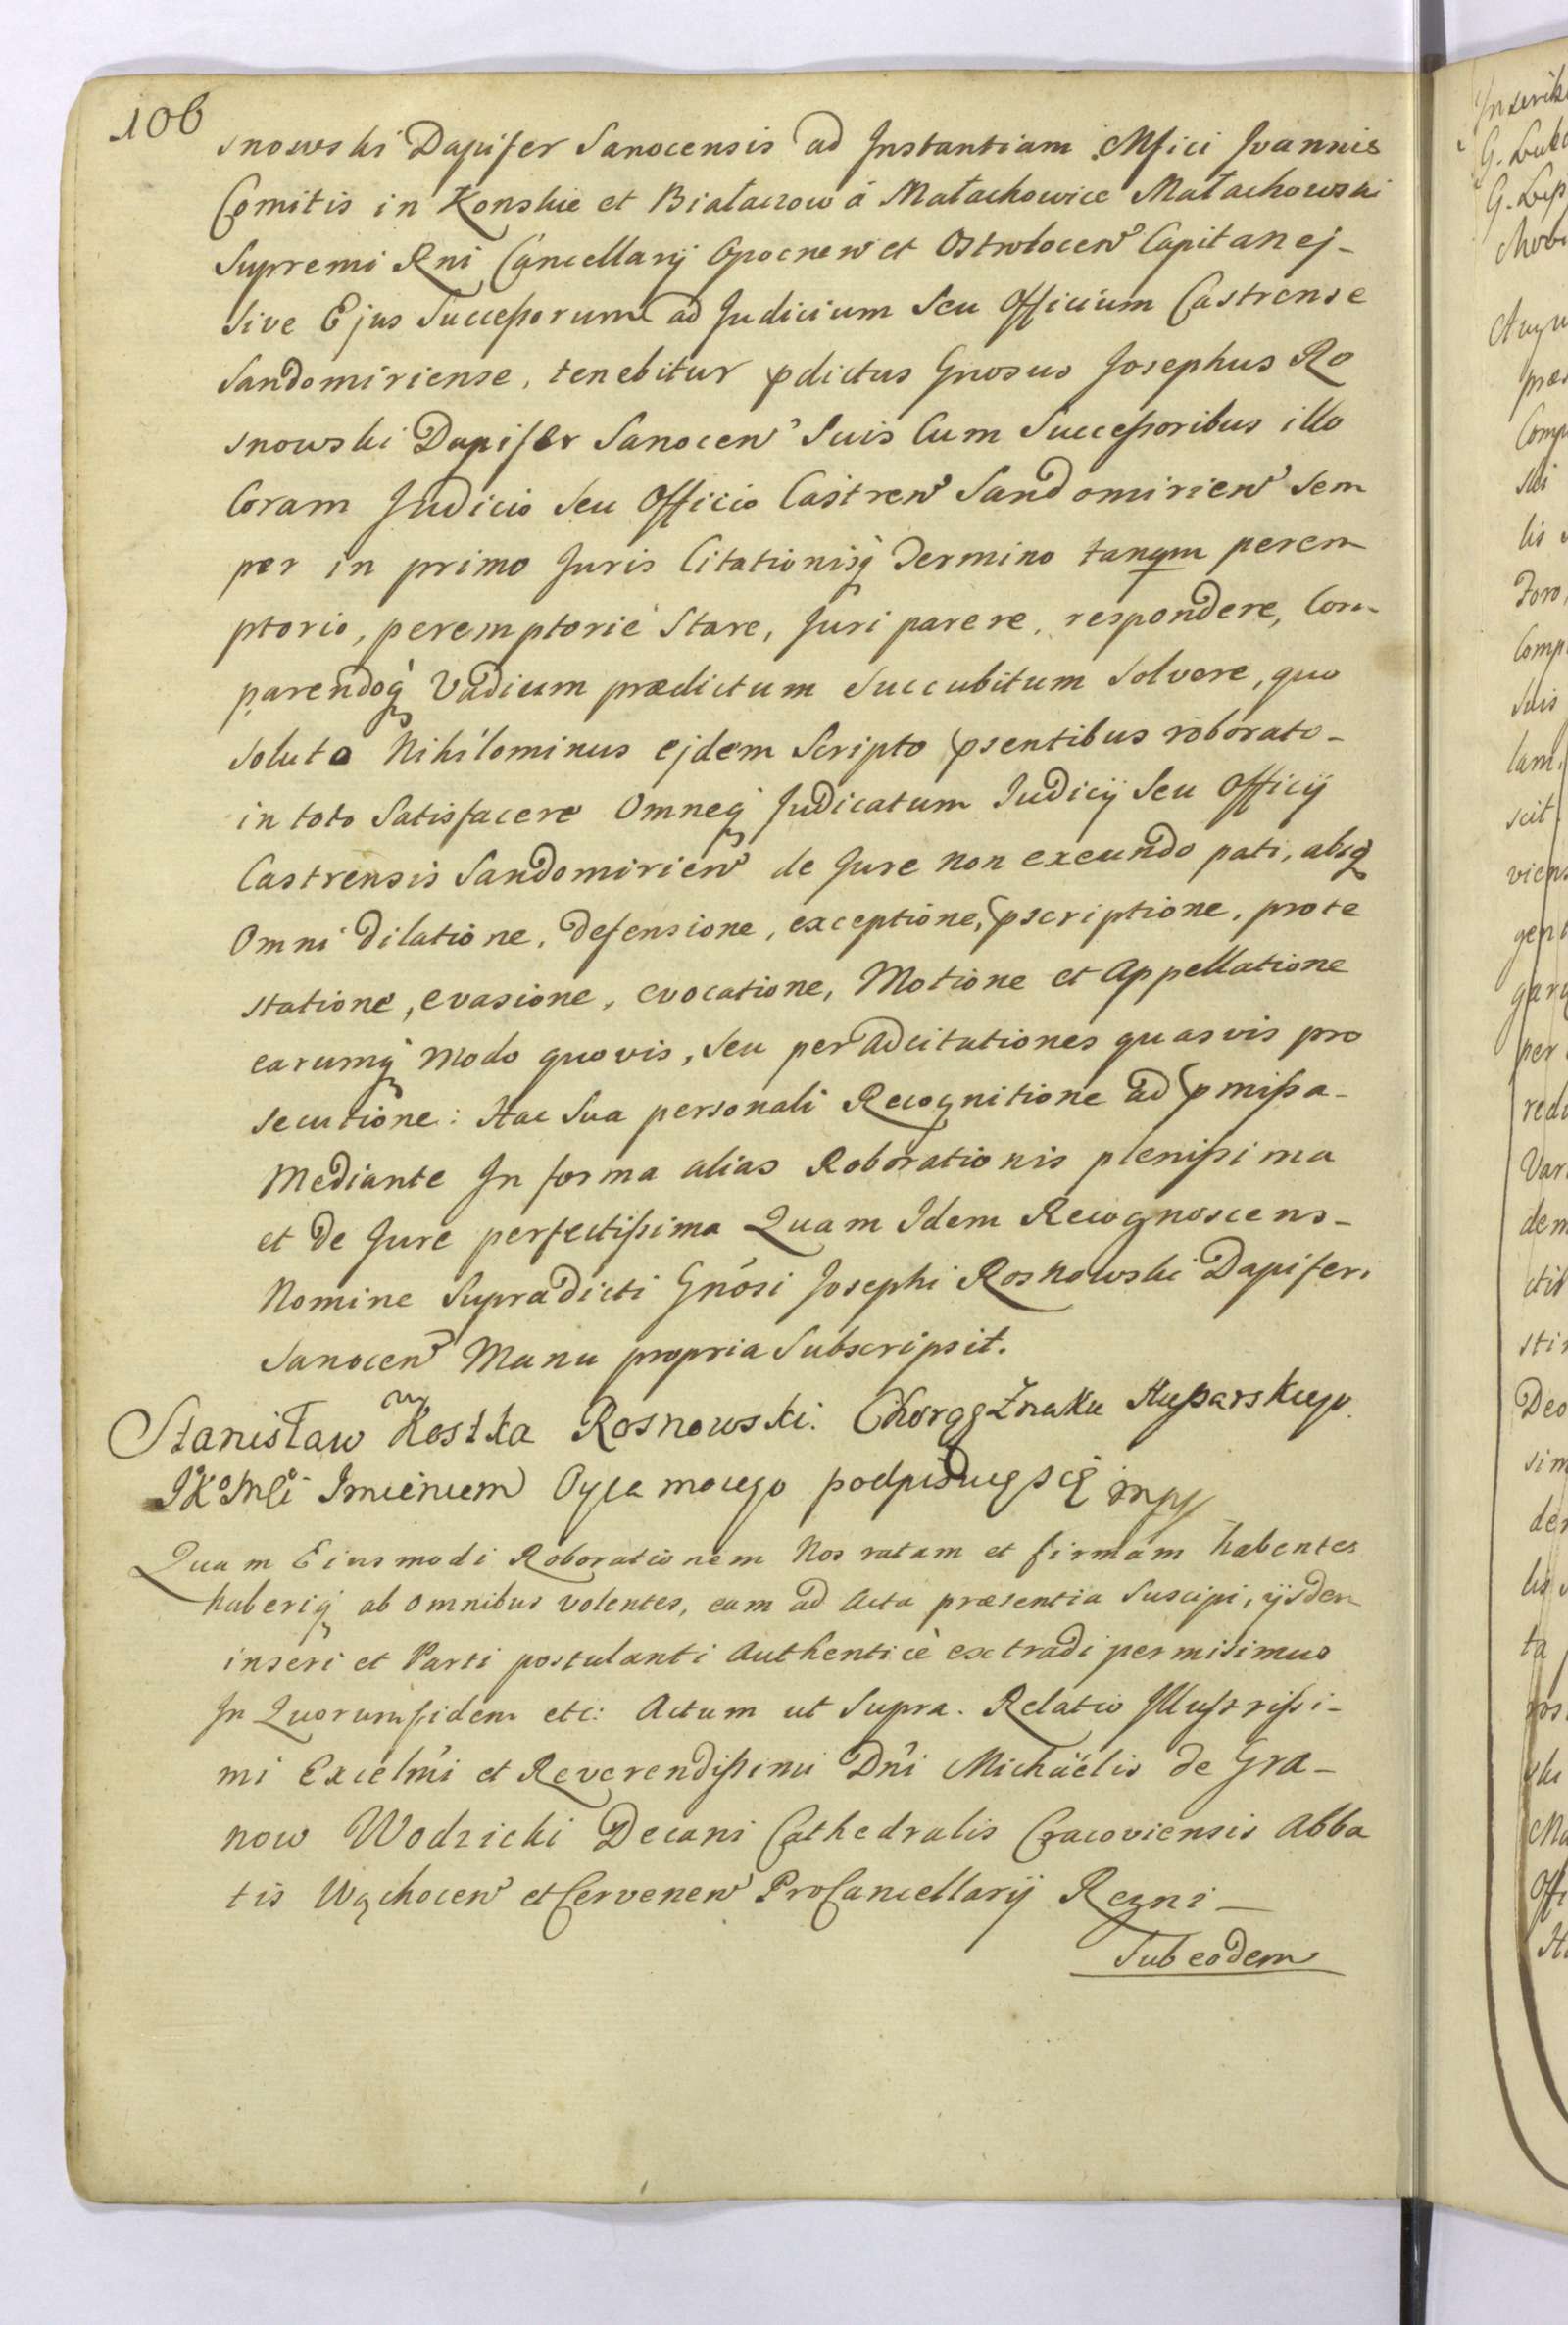 106
snowski Dapifer Sanocensis ad Instantiam Mfici Joannis
Comitis in Konskie et Białaczow á Małachowice Małachowski
Supremi Rni Cancellarij Opocnen et Ostrołocen Capitanej-
sive Ejus Successorum ad Judicium Seu Officium Castrense
Sandomiriense, tenebitur pdictus Gnosus Josephus Ro
snowski Dapifer Sanocen Suis Cum Successoribus illo
Coram Judicio Seu Officio Castren Sandomirien Sem
per in primo Juris Citationisq Termino tanqm perem
ptorio, peremptoriè Stare, Juri parere, respondere, Com-
parendoq Vadium prædictum Succubitum Solvere, quo
soluto Nihilominus ejdem Scripto psentibus roborato-
in toto Satisfacere Omneq Judicatum Judicij Seu Officij
Castrensis Sandomirien de Jure non exeundo pati, absq
Omni dilatione, defensione, exceptione, pscriptione, prote
statione, evasione, evocatione, Motione et Appellatione
earumq modo quovis, seu per Adcitationes quasvis pro
secutione: Hac Sua personali Recognitione ad pmissa-
Mediante In forma alias Roborationis plenissima
et de Jure perfectissima Quam Idem Recognoscens-
Nomine Supradicti Gnosi Josephi Rosnowski Dapiferi
Sanocen Manu propria Subscripsit.
Stanisław Kostka Rosnowski. Chorąż Znaku Husarskiego
JKMci Imieniem Oyca mojego podpisuię się mp
Quam Eiusmodi Roborationem Nos ratam et firmam habentes
haberiq ab omnibus volentes, eam ad Acta præsentia Suscipi, ijsdem
inseri et Parti postulanti Authenticè extradi permisimus
In Quorum fidem etc: Actum ut Supra. Relatio Illustrissi-
mi Excelmi et Reverendissimi Dni Michäelis de Gra-
now Wodzicki Decani Cathedralis Cracoviensis Abba
tis Wąchocen et Cervenen ProCancellarij Regni-
Sub eodem